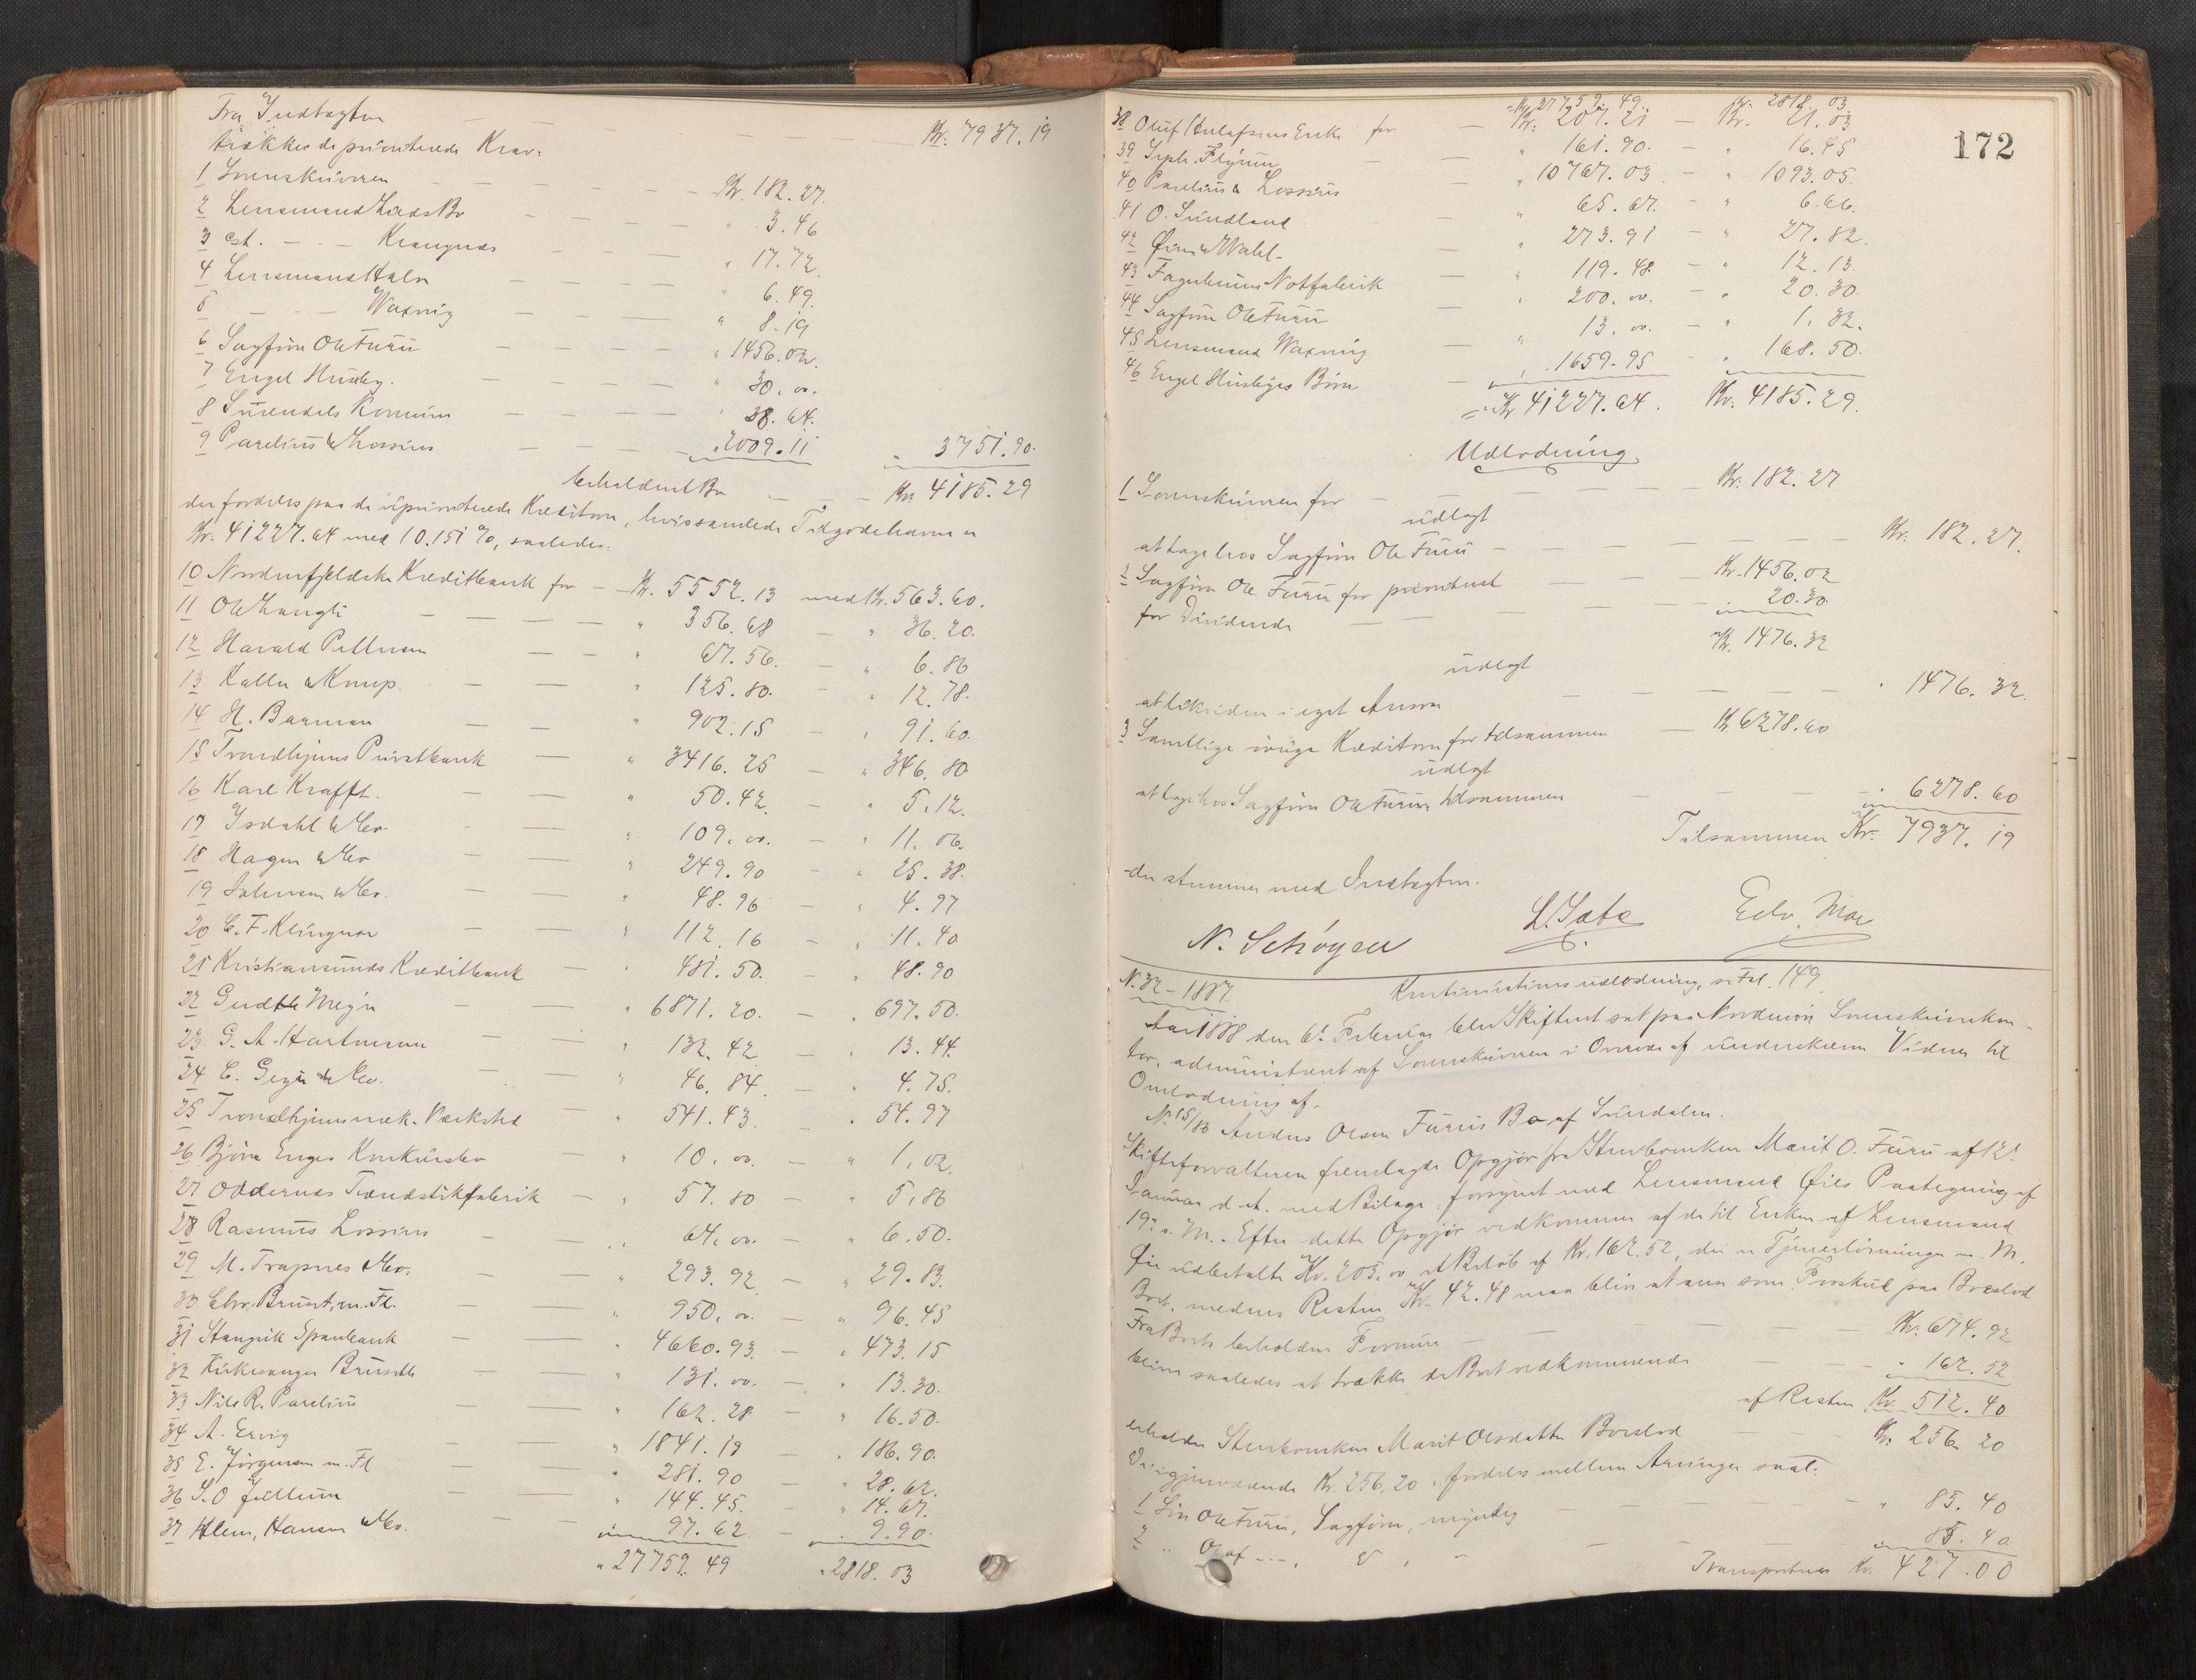 Fra Indtagten — — — — Kr. 7937.19
trækkes de prioriterede Krav:
1 Sorenskriveren — — — Kr. 182.27.
2 Lensmand Lieds Bo — — — " 3.46
3 cst. — - — Krangnæs — — — " 17.72.
4 Lensmand Halse — — — " 6.49.
5 — - — Waxvig — — — " 8.19
6 Sagfører Ole Furu — — — " 1456.02.
7 Engel Husby. — — — " 30.00.
8 Surendals Kommune — — — " 38.64.
9 Parelius & Lossius — — " 2009.11 " 3751.90.
beholdent Bo — — — Kr. 4185.29
der fordeles paa de uprioriterede Kreditorer, hvis samlede Tilgodehavende er
Kr. 41227.64 med 10.151 %, saaledes:
10 Nordenfjeldske Kreditbank for — Kr. 5552.13 med Kr. 563.60.
11 Ole Langli — — — " 356.68 — " 36.20.
12 Harald Pettersen — — " 67.56. — " 6.86
13 Kallu & Knup. — — " 125.80. — " 12.78.
14 H. Barman — — " 902.15 — " 91.60.
15 Trondhjems Privatbank — " 3416.25 — " 346.80.
16 Karl Krafft. — — " 50.42. — " 5.12.
17 Isdahl & Co. — — " 109.00. — " 11.06.
18 Hagen & Co — — " 249.90 — " 25.38.
19 Salvesen & Co. — — " 48.96 — " 4.97
20 C. F. Klingner — — " 112.16 — " 11.40
21 Kristiansunds Kreditbank — " 481.50. — " 48.90
22 Gudtk Meyn — — " 6871.20. — " 697.50.
23 G. A. Hartmann — — " 132.42 — " 13.44.
24 C. Geyn & Co. — — " 46.84 — " 4.75.
25 Trondhjems mek. Værksted — " 541.43. — " 54.97
26 Bjørn Enges Konkursbo — " 10.00. — " 1.02.
27 Oddernæs Tændstikfabrik — " 57.80 — " 5.86
28 Rasmus Lossius — — " 64.00. — " 6.50.
29 M. Trapnes & Co. — — " 293.92 — " 29.83.
30 Chr. Brunt, m. Fl. — — " 950.00. — " 96.45
31 Stangvik Sparebank — — " 4660.93. — " 473.15
32 Kirkesanger Bruseth — — " 131.00. — " 13.30.
33 Nils R. Parelius — — " 162.28 — " 16.50.
34 A. Ervig — — " 1841.19 " 186.90.
35 E. Jørgensen m. Fl — — " 281.90 — " 28.62.
36 S. O. Jullum — — " 144.45. — " 14.67.
37 Klem, Hansen & Co. — — " 97.62 — " 9.90.
" 27759.49 " 2818.03
172
Kr. 27759.49. Kr. 2818.03.
38 Oluf Hulafsens Enke for — Kr. 207.21 — Kr. 21.03
39 Seph. Flynum — " 161.90. — " 16.45
40 Parelius & Lossius — " 10767.03 — " 1093.05.
41 O. Sundland — " 65.67. — " 6.66.
42 Øien & Wahl — " 273.91 — " 27.82.
43 Fagerheims Notfabrik — " 119.48. — " 12.13
44 Sagfører Ole Furu — " 200.00. — " 20.30.
45 Lensmand Waxvig — " 13.00. — " 1.32.
46 Engel Husbys Børn — " 1659.95 — " 168.50.
Kr. 41227.64. Kr. 4185.29.
Udlodning
1 Sorenskriveren for — — — Kr. 182.27
udlagt
at tage hos Sagfører Ole Furu — — — — Kr. 182.27.
2 Sagfører Ole Furu for prioriteret — — Kr. 1456.02
for Dividende — — — 20.30.
Kr. 1476.32
udlagt
at likvidere i eget Ansvar — — — — " 1476.32.
3 Samtlige øvrige Kreditorer for tilsammen — Kr. 6278.60
udlagt
at tage hos Sagfører Ole Furu, tilsammen — — — " 6278.60
Tilsammen Kr. 7937.19
der stemmer med Indtagten.
N. Schøyen L. Sæte Edv. Moe
N. 32 - 1887. Kontinuations udlodning, se Fol. 149
Aar 1888 den 6te Februar blev Skifteret sat paa Nordmøre Sorenskriverkon-
tor, administreret af Sorenskriveren i Overvær af underskrevne Vidner til
Omlodning af.
N. 15/86 Anders Olsen Furus Bo af Surndalen.
Skifteforvalteren fremlagde Opgjør fra Stervboenken Marit O. Furu af 12te
Januar d. A. med Bilage, forsynet med Lensmand Øies Paategning af
19de s. M. Efter dette Opgjør vedkommer af de til Enken af Lensmand
Øie udbetalte Kr. 205.00 et Beløb af Kr. 162.52, der er Tjenerlønninger m. M.
Boet, medens Resten Kr. 42.48 maa blive at anse som Forskud paa Boeslod
Fra Boets beholdne Formue — — — Kr. 674.92
bliver saaledes at trække de Boet vedkommende — — " 162.52
af Resten Kr. 512.40
erholder Stervboenken Marit Olsdatter Boeslod — Kr. 256.20
De igjenværende Kr. 256.20. fordeles mellem Arvinger saal:
1 Søn Ole Furu, Sagfører, myndig — — — " 85.40
2 " Olaf — - —, d°, — — — " 85.40
Transporteres Kr. 427.00